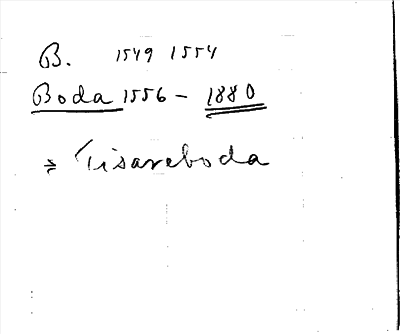 B. 1549 1554
Boda 1556 - 1880
= Tisareboda